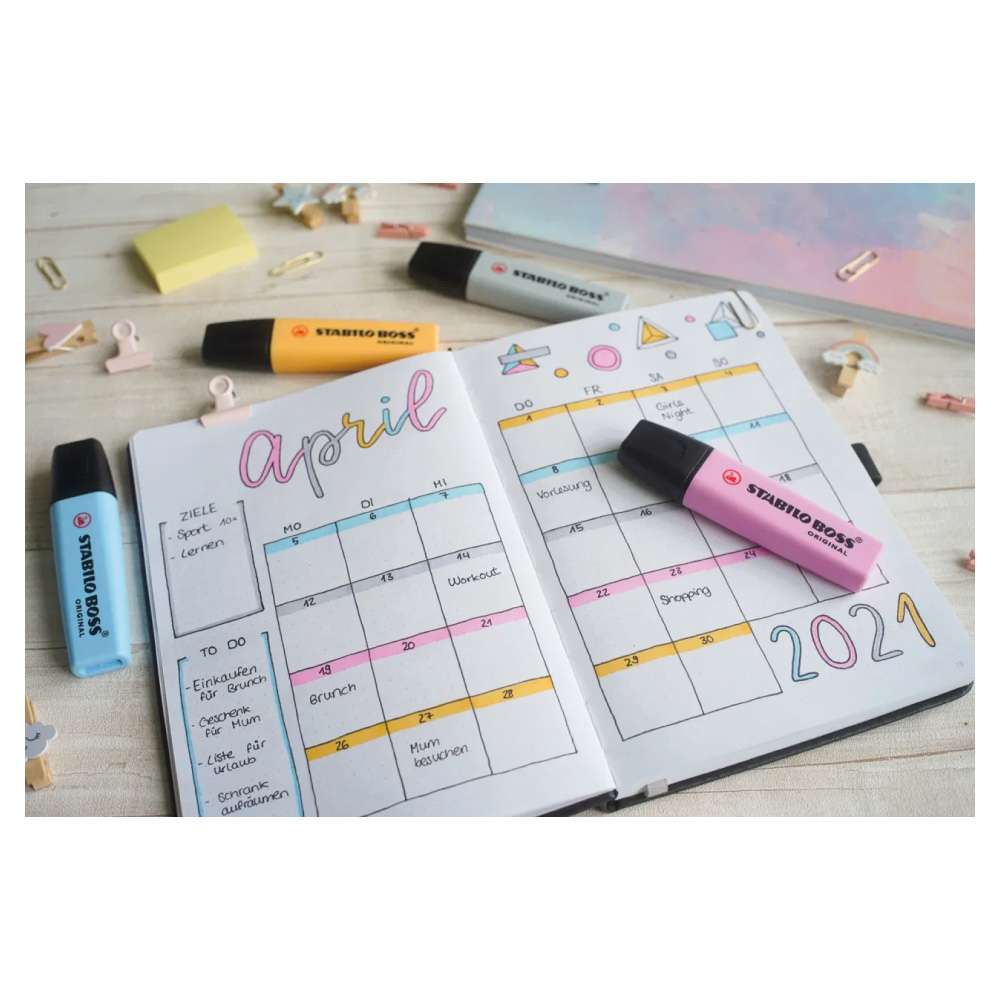 STABILO BOSS®
ORIGINAL
STABILO BOSS®
ORIGINAL
STABILO BOSS®
ORIGINAL
STABILO BOSS®
ORIGINAL
april
ZIELE
- Sport 10x
- Lernen
TO DO
- Einkaufen
für Brunch
- Geschenk
für Mum
- Liste für
Urlaub
- Schrank
aufräumen
MO DI MI
5 6 7
12 13 14
Workout
19 20 21
Brunch
26 27 28
Mum
besuchen
DO FR SA SO
1 2 3 4
Girls
Night
8 11
Vorlesung
15 16 18
22 23 24
Shopping
29 30
2021